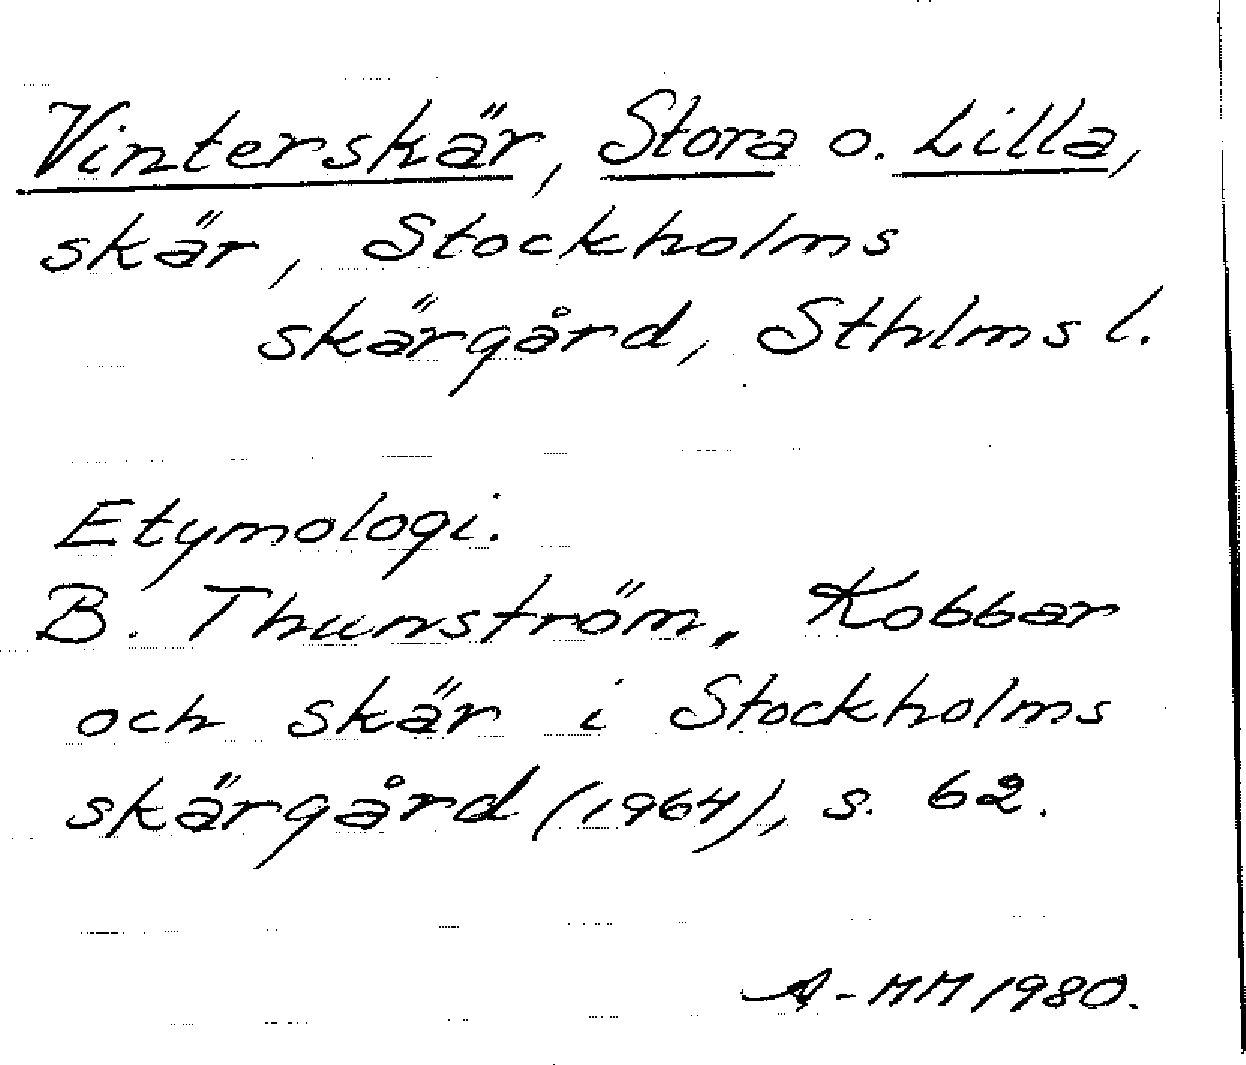 Vinterskär, Stora o. Lilla,
skär, Stockholms
skärgård, Sthlms l.
Etymologi.
B. Thunström, Kobbar
och skär i Stockholms
skärgård (1964), s. 62.
A-MM 1980.